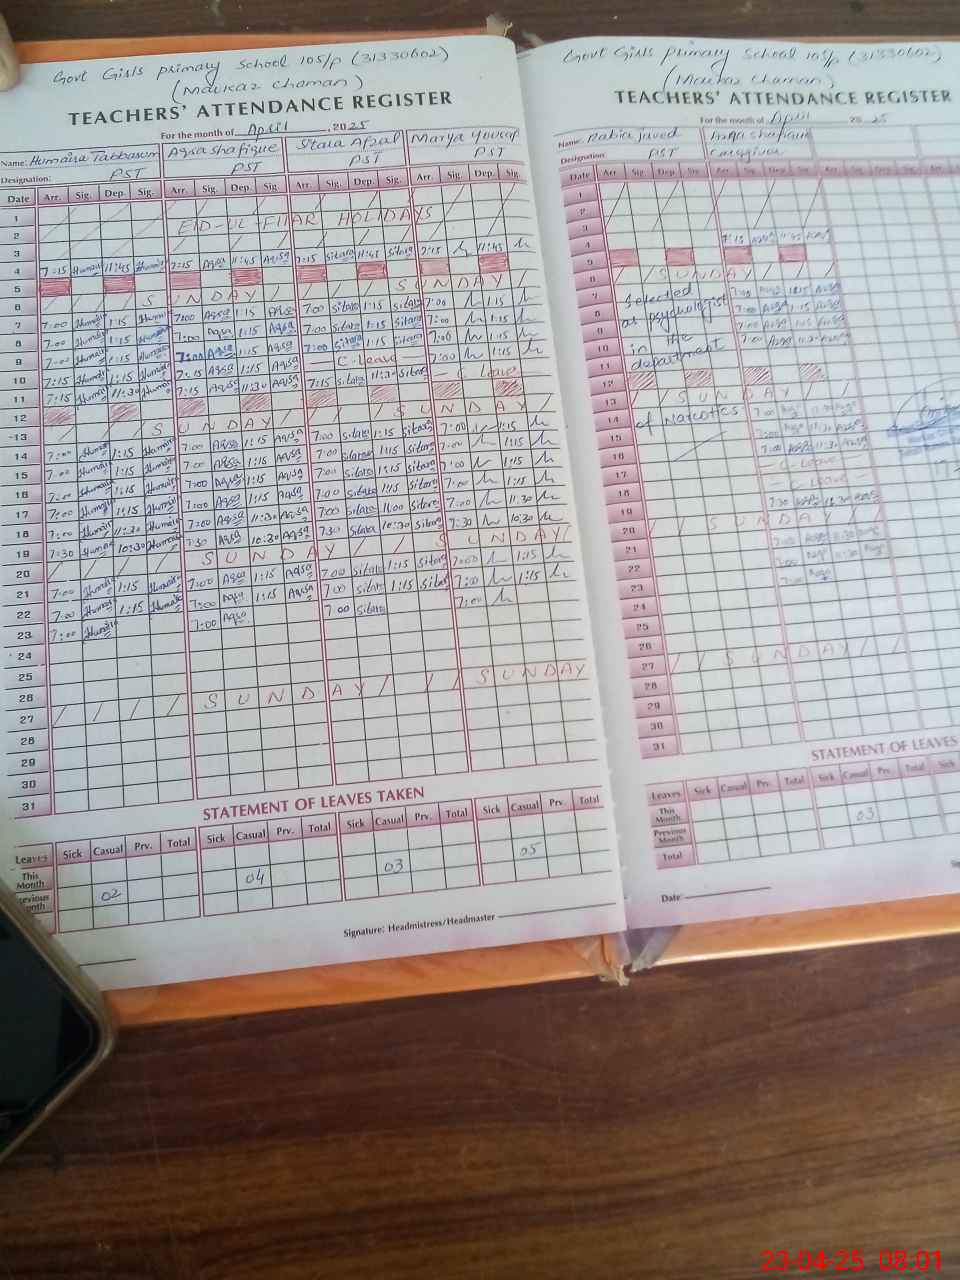 Govt Girls primary School 105/p (31330602)
(Markaz Chaman)
TEACHERS' ATTENDANCE REGISTER
For the month of April, 2025
Name: Humaira Tabbasum Aqsa Shafique Sitara Afzal Marya Yousaf
Designation: PST PST PST PST
Date Arr. Sig. Dep. Sig. Arr. Sig. Dep. Sig. Arr. Sig. Dep. Sig. Arr. Sig. Dep. Sig.
1
2 EID-UL-FITAR HOLIDAYS
3
4 7:15 Humaira 11:45 Humaira 7:15 Aqsa 11:45 Aqsa 7:15 Sitara 11:45 Sitara 7:15 11:45
5
6 SUNDAY SUNDAY
7 7:00 Humaira 1:15 Humaira 7:00 Aqsa 1:15 Aqsa 7:00 Sitara 1:15 Sitara 7:00 1:15
8 7:00 Humaira 1:15 Humaira 7:00 Aqsa 1:15 Aqsa 7:00 Sitara 1:15 Sitara 7:00 1:15
9 7:00 Humaira 1:15 Humaira 7:00 Aqsa 1:15 Aqsa 7:00 Sitara 1:15 Sitara 7:00 1:15
10 7:15 Humaira 1:15 Humaira 7:15 Aqsa 1:15 Aqsa — C-Leave — 7:00 1:15
11 7:15 Humaira 11:30 Humaira 7:15 Aqsa 11:30 Aqsa 7:15 Sitara 11:30 Sitara — C Leave —
12
13 SUNDAY SUNDAY
14 7:00 Humaira 1:15 Humaira 7:00 Aqsa 1:15 Aqsa 7:00 Sitara 1:15 Sitara 7:00 1:15
15 7:00 Humaira 1:15 Humaira 7:00 Aqsa 1:15 Aqsa 7:00 Sitara 1:15 Sitara 7:00 1:15
16 7:00 Humaira 1:15 Humaira 7:00 Aqsa 1:15 Aqsa 7:00 Sitara 1:15 Sitara 7:00 1:15
17 7:00 Humaira 1:15 Humaira 7:00 Aqsa 1:15 Aqsa 7:00 Sitara 1:15 Sitara 7:00 1:15
18 7:00 Humaira 11:30 Humaira 7:00 Aqsa 11:30 Aqsa 7:00 Sitara 11:00 Sitara 7:00 11:30
19 7:30 Humaira 10:30 Humaira 7:30 Aqsa 10:30 Aqsa 7:30 Sitara 10:30 Sitara 7:30 10:30
20 SUNDAY SUNDAY
21 7:00 Humaira 1:15 Humaira 7:00 Aqsa 1:15 Aqsa 7:00 Sitara 1:15 Sitara 7:00 1:15
22 7:00 Humaira 1:15 Humaira 7:00 Aqsa 1:15 Aqsa 7:00 Sitara 1:15 Sitara 7:00 1:15
23 7:00 Humaira 7:00 Aqsa 7:00 Sitara 7:00
24
25
26
27 SUNDAY SUNDAY
28
29
30
31
STATEMENT OF LEAVES TAKEN
Leaves Sick Casual Prv. Total Sick Casual Prv. Total Sick Casual Prv. Total Sick Casual Prv. Total
This Month
Previous Month 02 04 03 05
Signature: Headmistress/Headmaster
Govt Girls primary School 105/p (31330602)
(Markaz Chaman)
TEACHERS' ATTENDANCE REGISTER
For the month of April 2025
Name: Rabia javed Aqsa Shafique
Designation: PST Caregiver
Date Arr Sig. Dep Sig
1
2
3
4 7:15 Aqsa 11:45 Aqsa
5
6 SUNDAY
7 Selected
8 as psychologist
9 in the
10 department
11
12
13 SUNDAY
14 of Narcotics
15
16
17 — C-Leave —
18 — C Leave
19 7:30
20 SUNDA
21 7:00
22 7:00
23 7:00
24
25
26
27 SUNDAY
28
29
30
31
STATEMENT OF LEAVES
Leaves Sick Casual Prv. Total Sick Casual Prv. Total Sick
This Month
Previous Month 03
Total
Date:
23-04-25 08:01